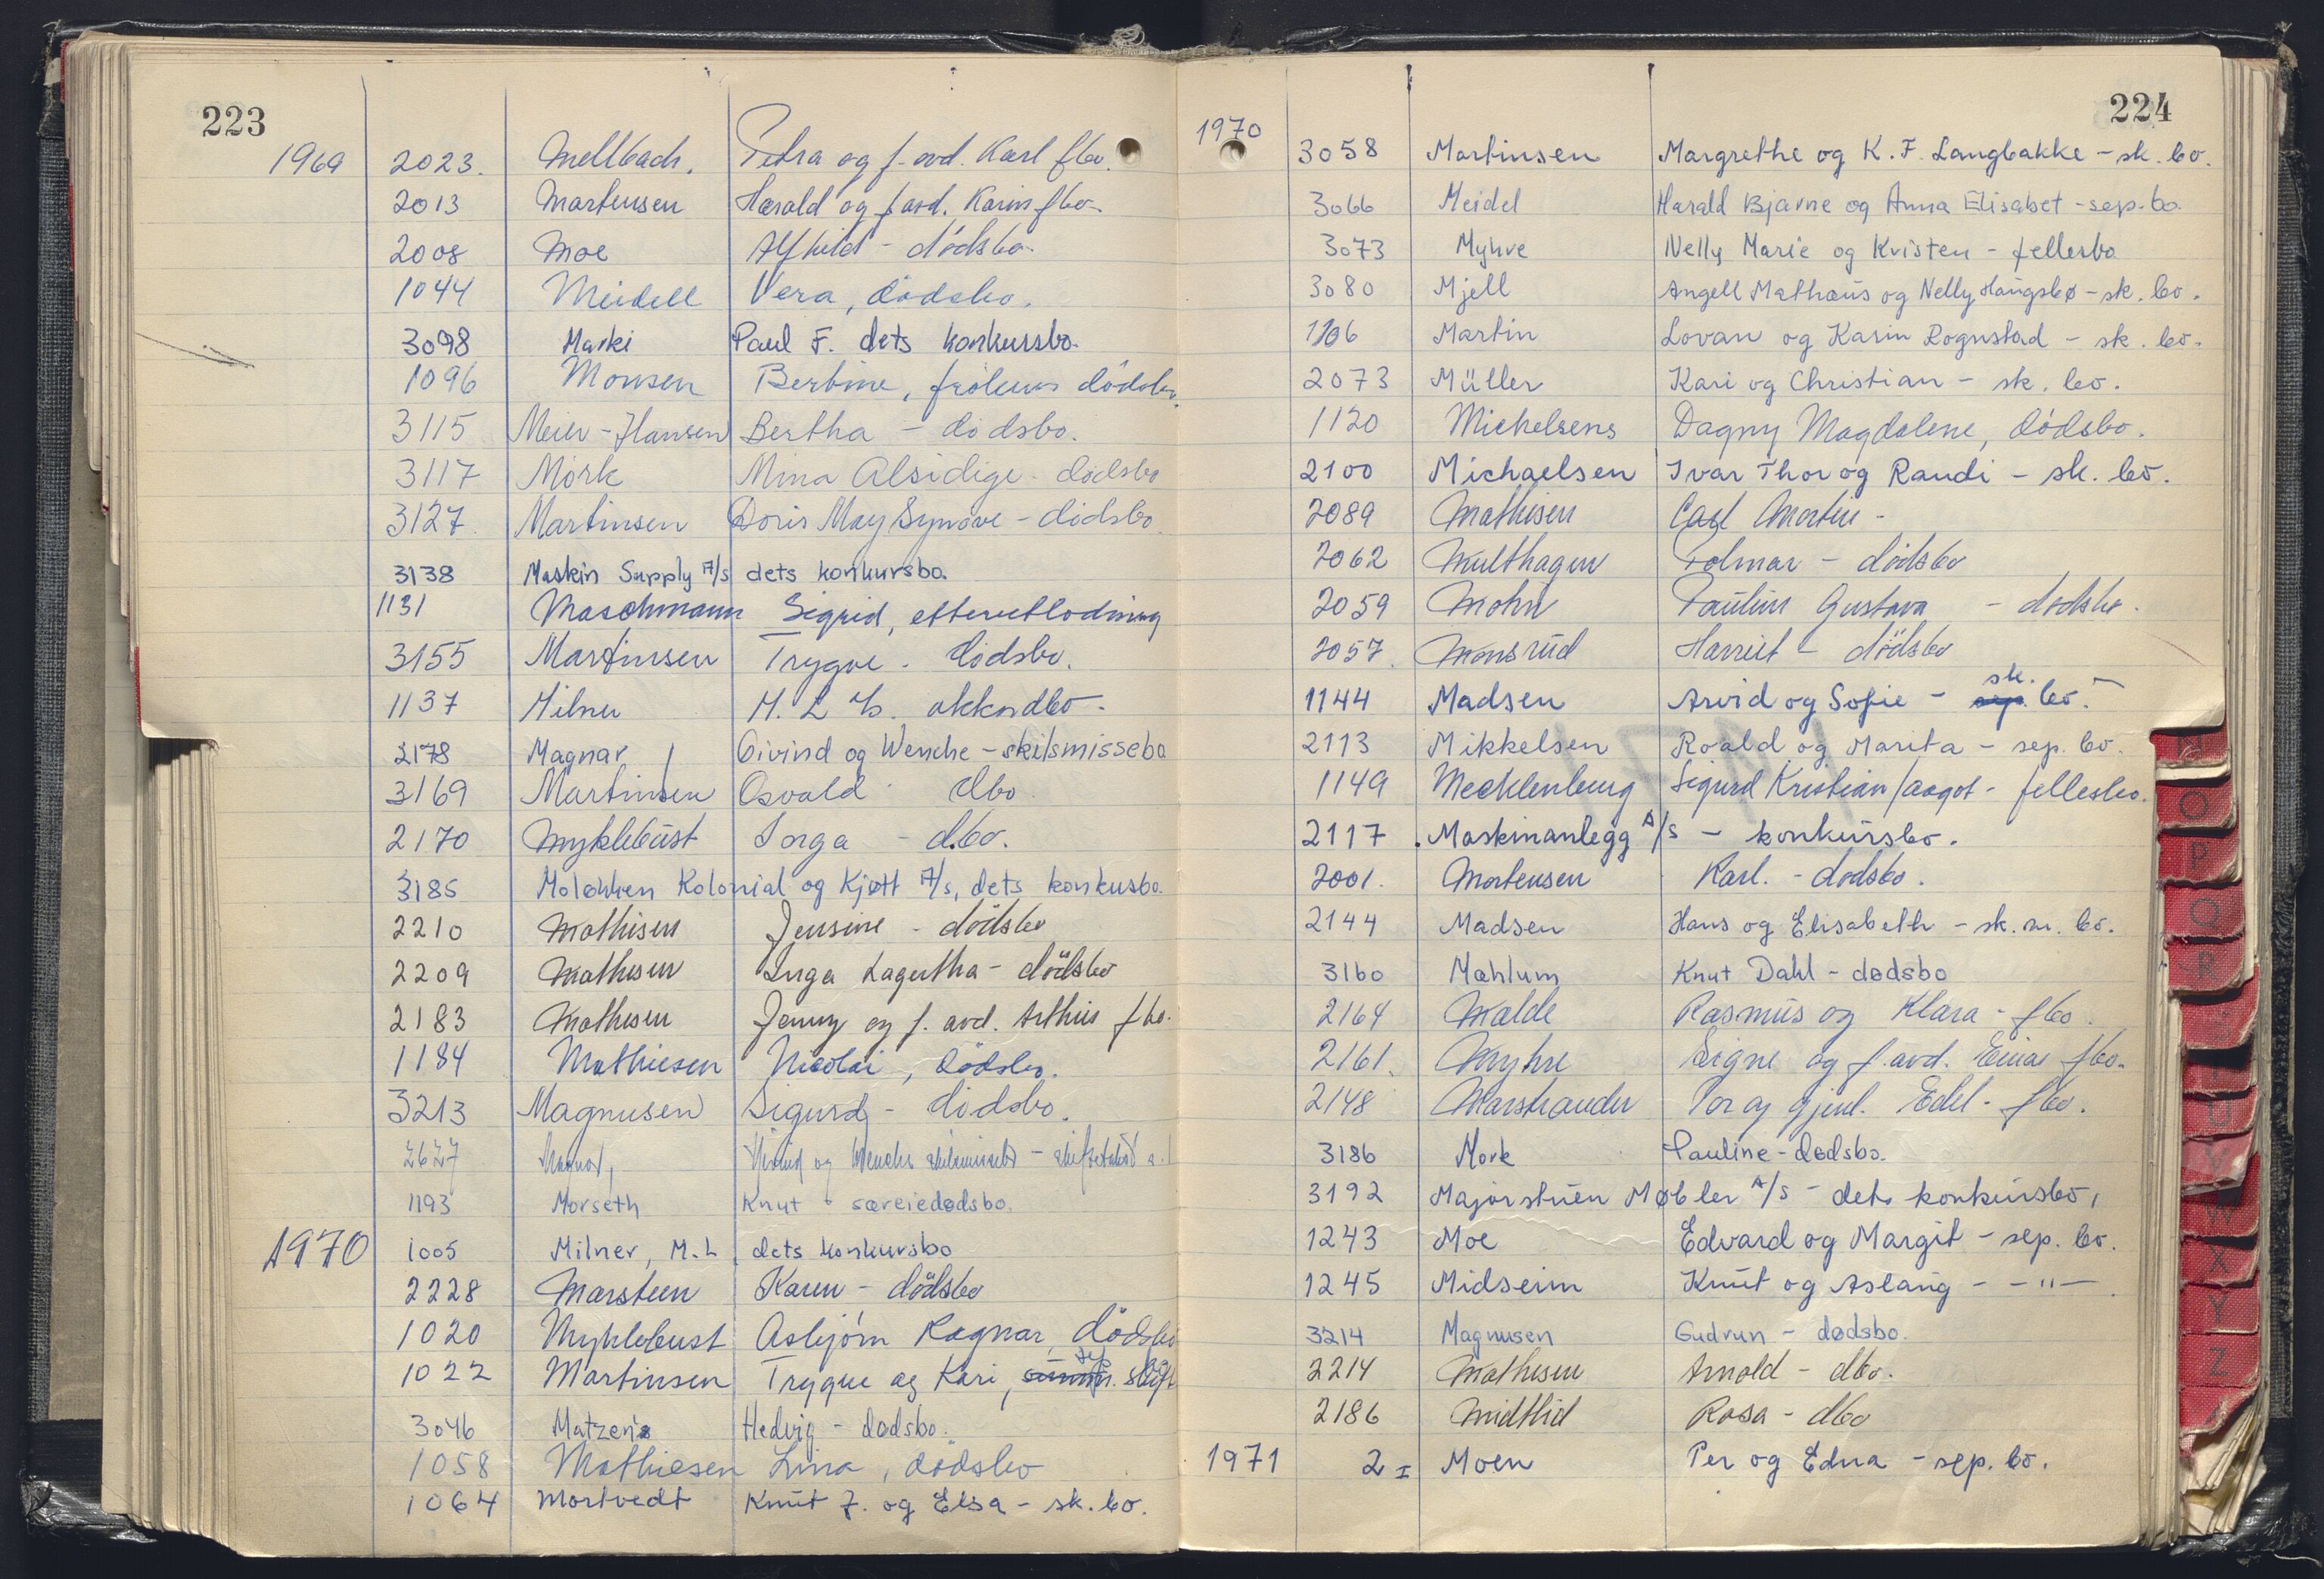 223
1969 2023. Mellbach, Petra og f. avd. Karl fbo.
2013 Martensen Harald og f avd. Karin fbo.
2008 Moe Alfhild - dödsbo.
1044 Meidell Vera, dödsbo.
3098 Maski Paul F. dets konkursbo.
1096 Monsen Bertine, frökens dödsbo.
3115 Meier-Hansen Bertha - dödsbo.
3117 Mörk Mina Alsidige - dödsbo
3127 Martinsen Doris May Synöve - dödsbo
3138 Maskin Supply A/S dets konkursbo.
1131 Maschmann Sigrid, etterutlodning
3155 Martinsen Trygve - dödsbo.
1137 Milner M. L. akkordbo.
3178 Magnar, Öivind og Wenche - skilsmissebo
3169 Martinsen Osvald dbo
2170 Myklebust Inga - dbo.
3185 Moløkken Kolonial og Kjøtt A/S, dets konkusbo.
2210 Mathisen Jensine - dödsbo
2209 Mathisen Inga Lagertha - dödsbo
2183 Mathisen Jenny og f. avd. Arthur fbo.
1184 Mathiesen Nicolai, dödsbo.
3213 Magnusen Sigurd - dödsbo.
Magnar, Øivind og Wenches
1193 Morseth Knut - særeiedødsbo.
1970 1005 Milner, M. L. dets konkursbo
2228 Marsteen Karen - dödsbo
1020 Myklebust Asbjörn Ragnar, dödsbo
1022 Martinsen Trygve og Kari, sep. skift
3046 Matzen's Hedvig - dødsbo.
1058 Mathiesen Lina, dödsbo
1064 Mortvedt Knut J. og Elsa - sk. bo.
224
1970 3058 Martinsen Margrethe og K. F. Langbakke - sk. bo.
3066 Meidel Harald Bjarne og Anna Elisabet - sep. bo.
3073 Myhre Nelly Marie og Kristen - fellesbo
3080 Mjell Angell Mathæus og Nelly Haugsbø - sk. bo.
1106 Martin Lovan og Karin Rognstad - sk. bo.
2073 Müller Kari og Christian - sk. bo.
1120 Michelsens Dagny Magdalene, dödsbo.
2100 Michaelsen Ivar Thor og Randi - sk. bo.
2089 Mathisen Carl Morten -
2062 Multhagen Folmar - dödsbo
2059 Mohn Pauline Gustava - dödsbo.
2057. Monsrud Harriet - dödsbo
1144 Madsen Arvid og Sofie - sep. sk. bo.
2113 Mikkelsen Roald og Marita - sep. bo.
1149 Mecklenburg Sigurd Kristian/Aagot - fellesbo.
2117 Maskinanlegg A/S - konkursbo.
2001. Mortensen Karl. - dödsbo.
2144 Madsen Hans og Elisabeth - sk. m. bo.
3160 Mæhlum Knut Dahl - dødsbo
2164 Malde Rasmus og Klara - fbo.
2161. Myhre Signe og f. avd. Einar fbo.
2148 Marstrander Tor og gjenl. Edel - fbo.
3186 Mork Pauline - dødsbo.
3192 Majorstuen Møbler A/S - dets konkursbo,
1243 Moe Edvard og Margit - sep. bo.
1245 Midseim Knut og Aslaug - - " -
3214 Magnusen Gudrun - dødsbo.
2214 Mathisen Arnold - dbo.
2186 Midtlid Rosa - dbo
1971 2 I Moen Per og Edna - sep. bo.
M
O
P
Q
R
U
V
W
X
Y
Z